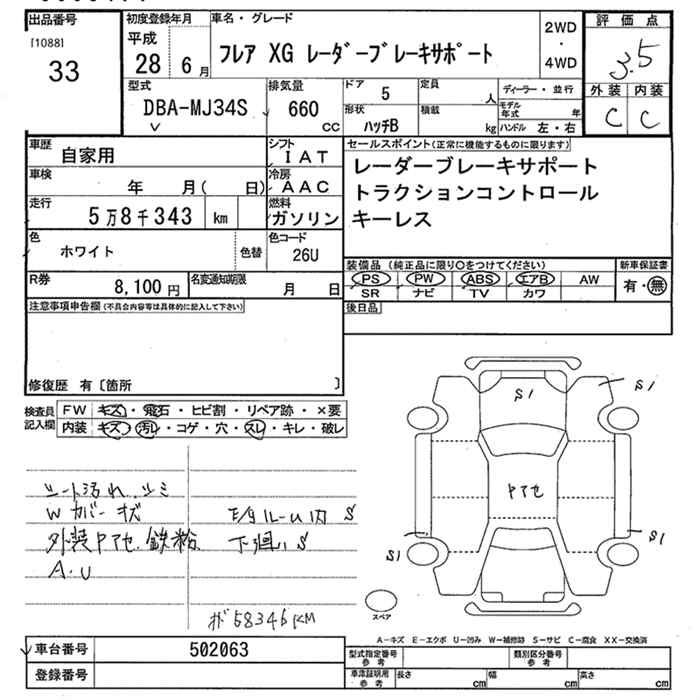 出品番号
[1088]
33
初度登録年月
平成
28 6月
車名・グレード
フレア XG レーダーブレーキサポート
2WD
・
4WD
評価点
3.5
外装 内装
C C
型式
DBA-MJ34S
排気量
660
cc
ドア
5
形状
ハッチB
定員
人
積載
kg
ディーラー・並行
モデル年式 年
ハンドル 左・右
車歴
自家用
車検
年 月( 日)
走行
5万8千343 km
色
ホワイト
色替
シフト
IAT
冷房
AAC
燃料
ガソリン
色コード
26U
セールスポイント(正常に機能するものに限ります)
レーダーブレーキサポート
トラクションコントロール
キーレス
R券
8,100 円
名変通知期限
月 日
装備品 (純正品に限り○をつけてください)
PS PW ABS エアB AW
SR ナビ TV カワ
新車保証書
有・無
注意事項申告欄(不具合内容等は具体的に記入して下さい)
後日品
修復歴 有〔箇所 〕
検査員
記入欄
FW キズ・飛石・ヒビ割・リペア跡・×要
内装 キズ・汚レ・コゲ・穴・スレ・キレ・破レ
シート汚れ、シミ
Wカバーキズ
外装Pアセ、鉄粉、
A.U
モタルーム内 S
下廻り S
ポ58346KM
S1
S1
Pアセ
S1
S1
スペア
A-キズ E-エクボ U-凹み W-補修跡 S-サビ C-腐食 XX-交換済
車台番号
502063
登録番号
型式指定番号
参考
類別区分番号
参考
車庫証明用
参考
長さ cm
幅 cm
高さ cm